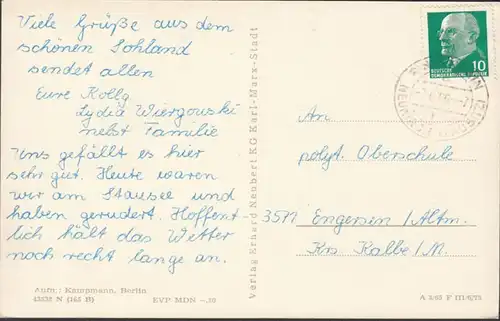 Viele Grüße aus dem
schönen Sohland
sendet allen
Eure Kollg.
Lydia Wierzowski
nebst Familie
Uns gefällt es hier
sehr gut. Heute waren
wir am Stausee und
haben gerudert. Hoffent-
lich hält das Wetter
noch recht lange an.
Aufn.: Kampmann, Berlin
EVP MDN -.20
Verlag Erhard Neubert KG Karl-Marx-Stadt
DEUTSCHE
DEMOKRATISCHE REPUBLIK
10
An
polyt. Oberschule
3571 Engersen / Altm.
Krs Kalbe / M.